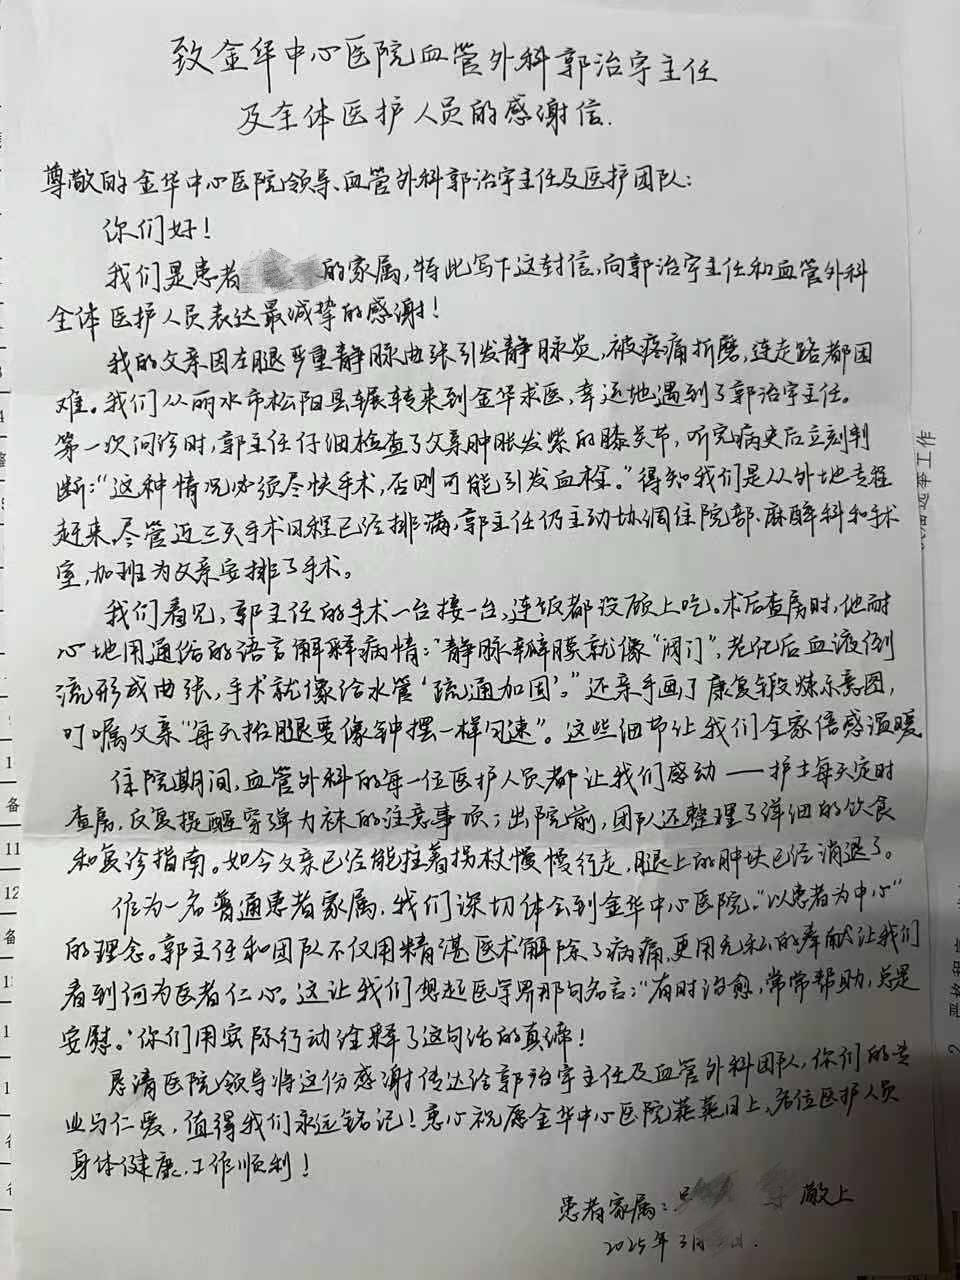 致金华中心医院血管外科郭治宇主任
及全体医护人员的感谢信.
尊敬的金华中心医院领导、血管外科郭治宇主任及医护团队:
你们好!
我们是患者 的家属,特此写下这封信,向郭治宇主任和血管外科
全体医护人员表达最诚挚的感谢!
我的父亲因左腿严重静脉曲张引发静脉炎,被疼痛折磨,连走路都困
难。我们从丽水市松阳县辗转来到金华求医,幸运地遇到了郭治宇主任。
第一次问诊时,郭主任仔细检查了父亲肿胀发紫的膝关节,听完病史后立刻判
断:“这种情况必须尽快手术,否则可能引发血栓。”得知我们是从外地专程
赶来,尽管近三天手术日程已经排满,郭主任仍主动协调住院部、麻醉科和手术
室,加班为父亲安排了手术。
我们看见,郭主任的手术一台接一台,连饭都没顾上吃。术后查房时,他耐
心地用通俗的语言解释病情:“静脉瓣膜就像“阀门”,老化后血液倒
流形成曲张,手术就像给水管‘疏通加固’。”还亲手画了康复锻炼示意图,
叮嘱父亲“每天抬腿要像钟摆一样匀速”。这些细节让我们全家倍感温暖
住院期间,血管外科的每一位医护人员都让我们感动——护士每天定时
查房,反复提醒穿弹力袜的注意事项;出院前,团队还整理了详细的饮食
和复诊指南。如今父亲已经能拄着拐杖慢慢行走,腿上的肿块已经消退了。
作为一名普通患者家属,我们深切体会到金华中心医院“以患者为中心”
的理念。郭主任和团队不仅用精湛医术解除了病痛,更用无私的奉献让我们
看到何为医者仁心。这让我们想起医学界那句名言:“有时治愈,常常帮助,总是
安慰。’你们用实际行动诠释了这句话的真谛!
恳请医院领导将这份感谢传达给郭治宇主任及血管外科团队,你们的专
业与仁爱,值得我们永远铭记!衷心祝愿金华中心医院蒸蒸日上,各位医护人员
身体健康,工作顺利!
患者家属: 敬上
2025年3月
备
11
12
备